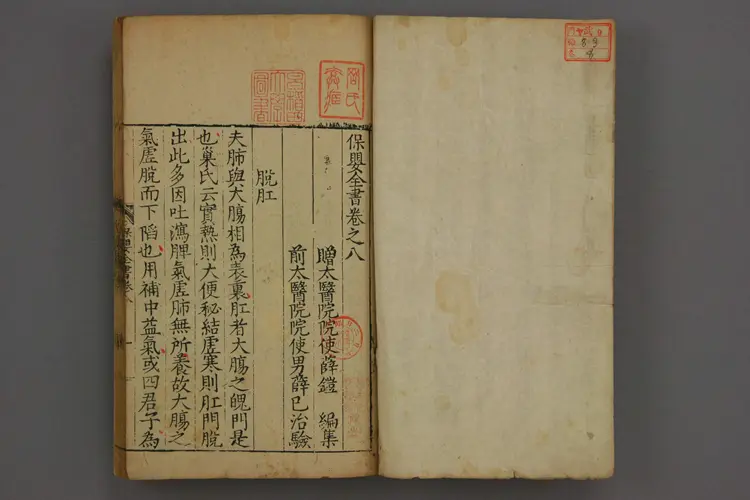 保嬰全書卷之八
贈太醫院院使薛鎧 編集
前太醫院院使男薛已治驗
脫肛
夫肺與大腸相為表裏肛者大腸之魄門是
也巢氏云實熱則大便秘結虛寒則肛門脫
出此多因吐瀉脾氣虛肺無所養故大腸之
氣虛脫而下陷也用補中益氣或四君子為